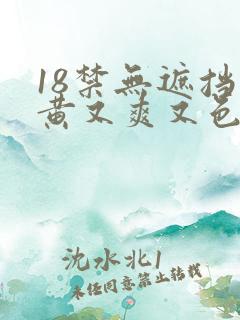 18禁無遮挡
黄又爽又色
沈水北1
未任同意禁止转载